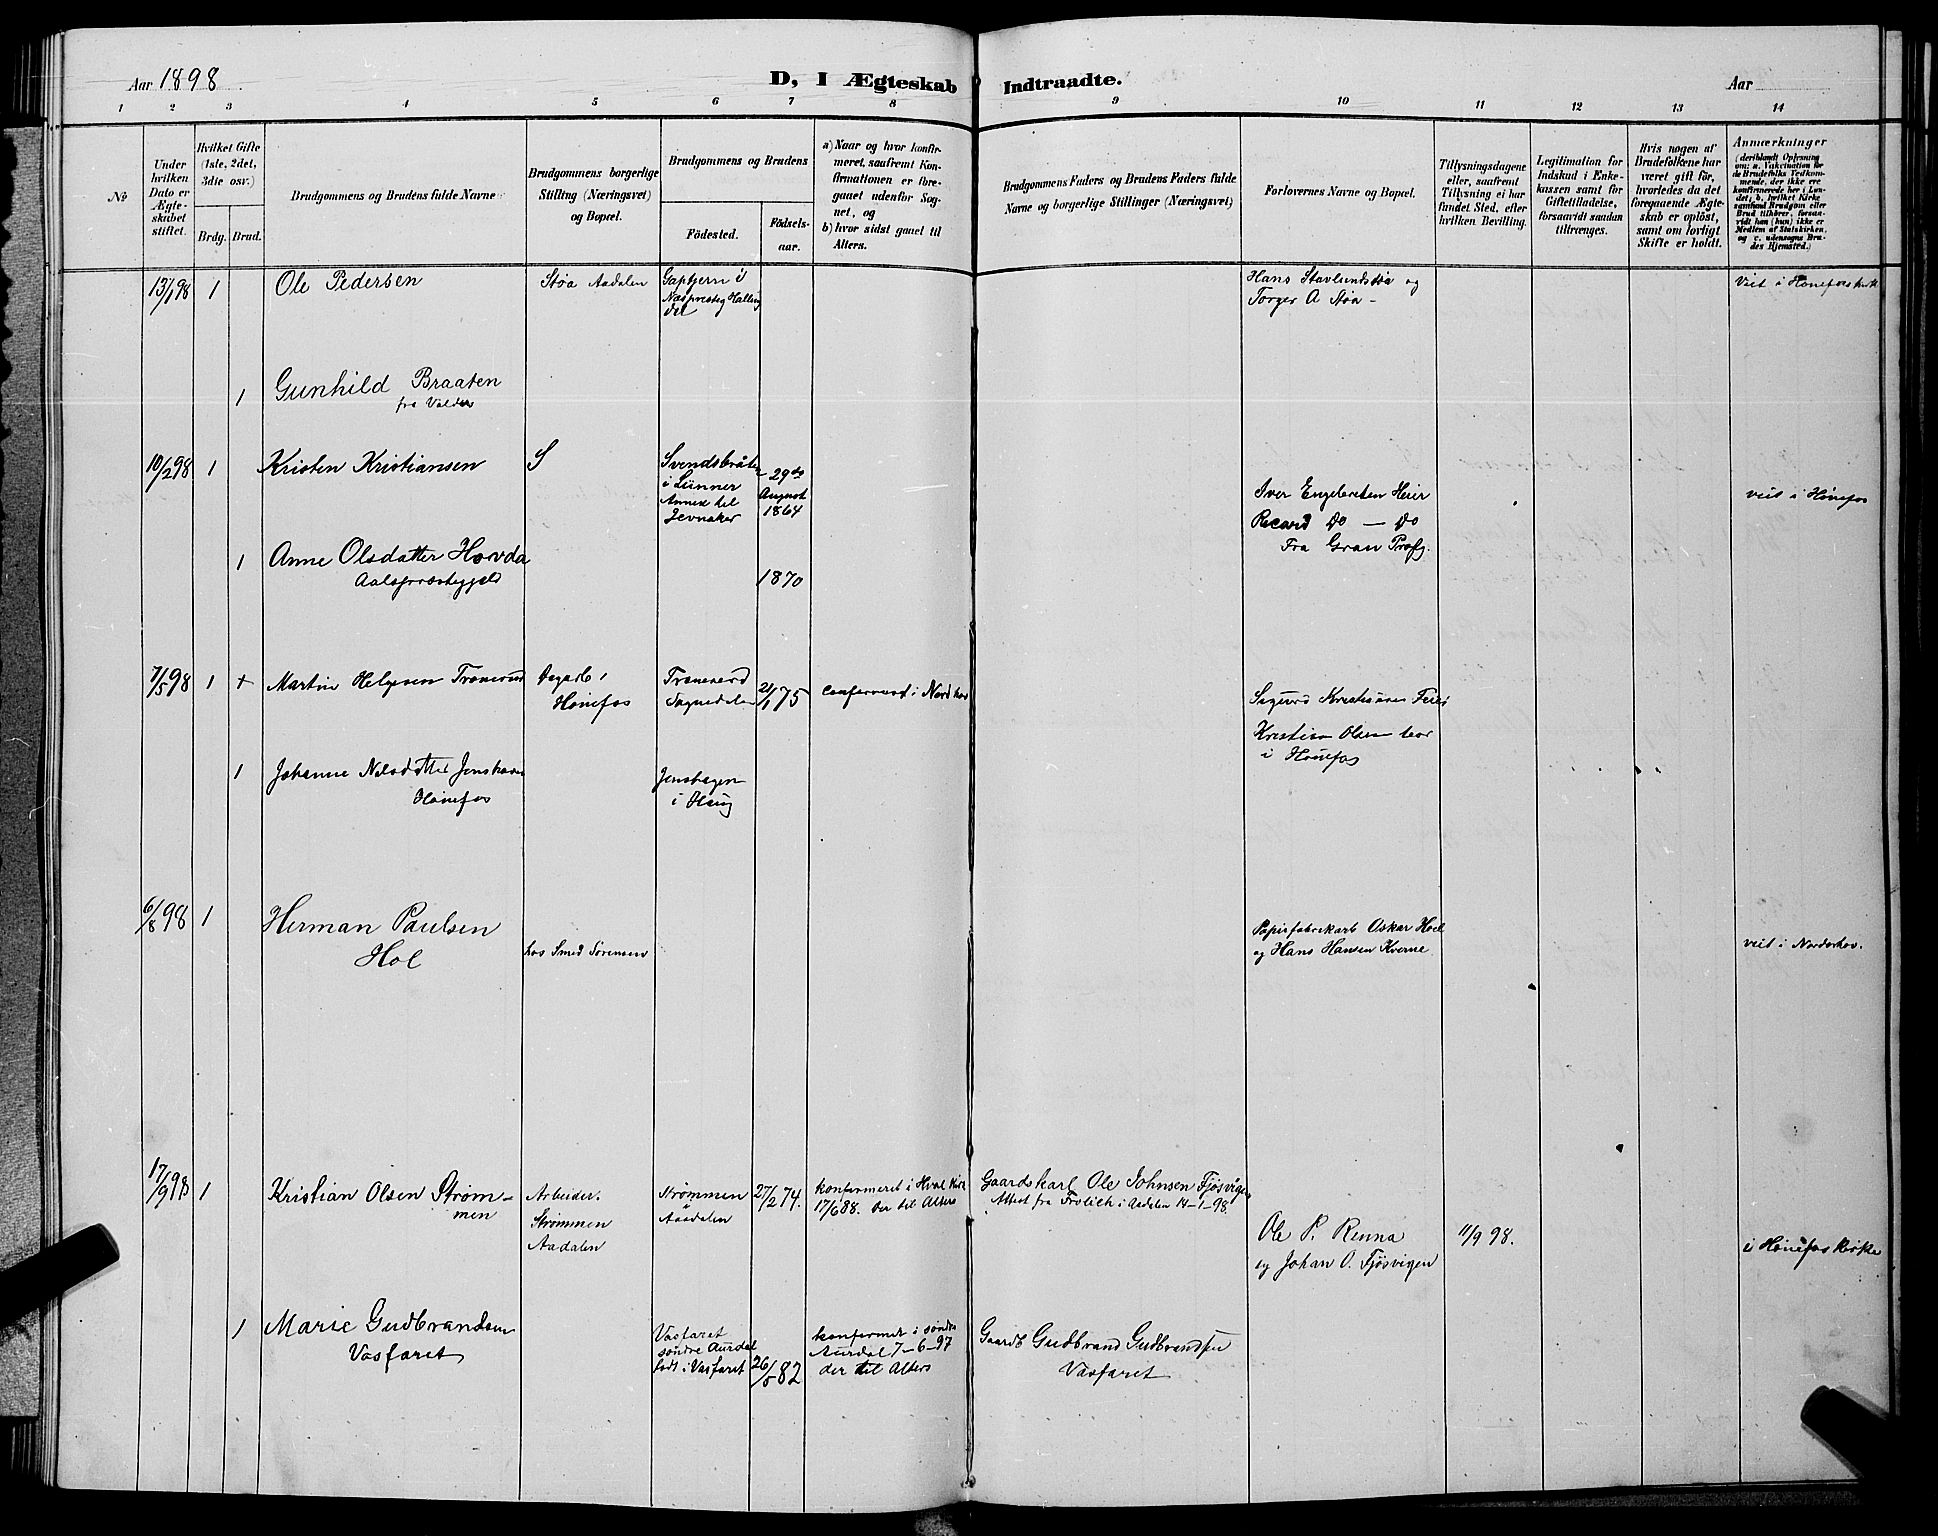 Aar 1898
D, I Ægteskab Indtraadte.
Aar
1 2 3 4 5 6 7 8 9 10 11 12 13 14
No
Under hvilken Dato er Ægteskabet stiftet.
Hvilket Gifte (1ste, 2det, 3die osv.)
Brdg. Brud.
Brudgommens og Brudens fulde Navne
Brudgommens borgerlige Stilling (Næringsvei) og Bopæl.
Brudgommens og Brudens
Fødested.
Fødselsaar.
a) Naar og hvor konfirmeret, saafremt Konfirmationen er foregaaet udenfor Sognet, og
b) hvor sidst gaaet til Alters.
Brudgommens Faders og Brudens Faders fulde Navne og borgerlige Stillinger (Næringsvei)
Forlovernes Navne og Bopæl.
Tillysningsdagene eller, saafremt Tillysning ei har fundet Sted, efter hvilken Bevilling.
Legitimation for Indskud i Enkekassen samt for Giftetilladelse, forsaavidt saadan tiltrænges.
Hvis nogen af Brudefolkene har været gift før, hvorledes da det foregaaende Ægteskab er opløst, samt om lovligt Skifte er holdt.
Anmærkninger
13/1 98 1 Ole Pedersen Støa Aadalen
Næspresteg Halling
dal
Hans Stavlundsstøa og
Torger A Støa -
Viet i Hønefos kirk
1 Gunhild Braaten
fra Valders
10/2 98 1 Kristen Kristiansen S
Svendsbråten
i Lunner
Annex til
Jevnaker
29de
August
1864
Iver Engebretsen Heier
Ricard Do — Do
Fra Gran Præstg.
viet i Hønefos
1 Anne Olsdatter Hovda
Aalspræstegjeld
1870
7/5 98 1 + Martin Helgesen Tranerud
Dagarb i
Hønefos
Tranerud
Sognedalen
21/1 75
confermerd i Nordhov
Sigurd Kristiansen
Kristian Olsen
i Hønefos
1 Johanne Nelsdatter Jenshaven
Hønefos
Jenshagen
i Haug
6/8 98 1 Herman Paulsen
Hol
hos Smed Sørensen
Papirfabrikarb Oskar Hoel
og Hans Hansen Kverne
viet i Norderhov.
17/9 98 1 Kristian Olsen Strøm-
men
Arbeider.
Strømmen
Aadalen
Strømmen
Aadalen
27/2 74.
konfermeret i Hval Kirk
17/6 88. Der til Alters
Gaardskarl Ole Johnsen Fjøsvigen
Attest fra Frolich i Aadalen 14-1-98.
Ole P. Renna
og Johan O. Fjøsvigen
11/9 98.
i Hønefos Kirke
1 Marie Gudbrandsen
Vasfaret
Vasfaret
søndre Aurdal
født i Vasfaret
26/5 82
konfermet i søndre
Aurdal 7-6-97
der til Alters
Gaardb Gudbrand Gudbrandsen
Vasfaret